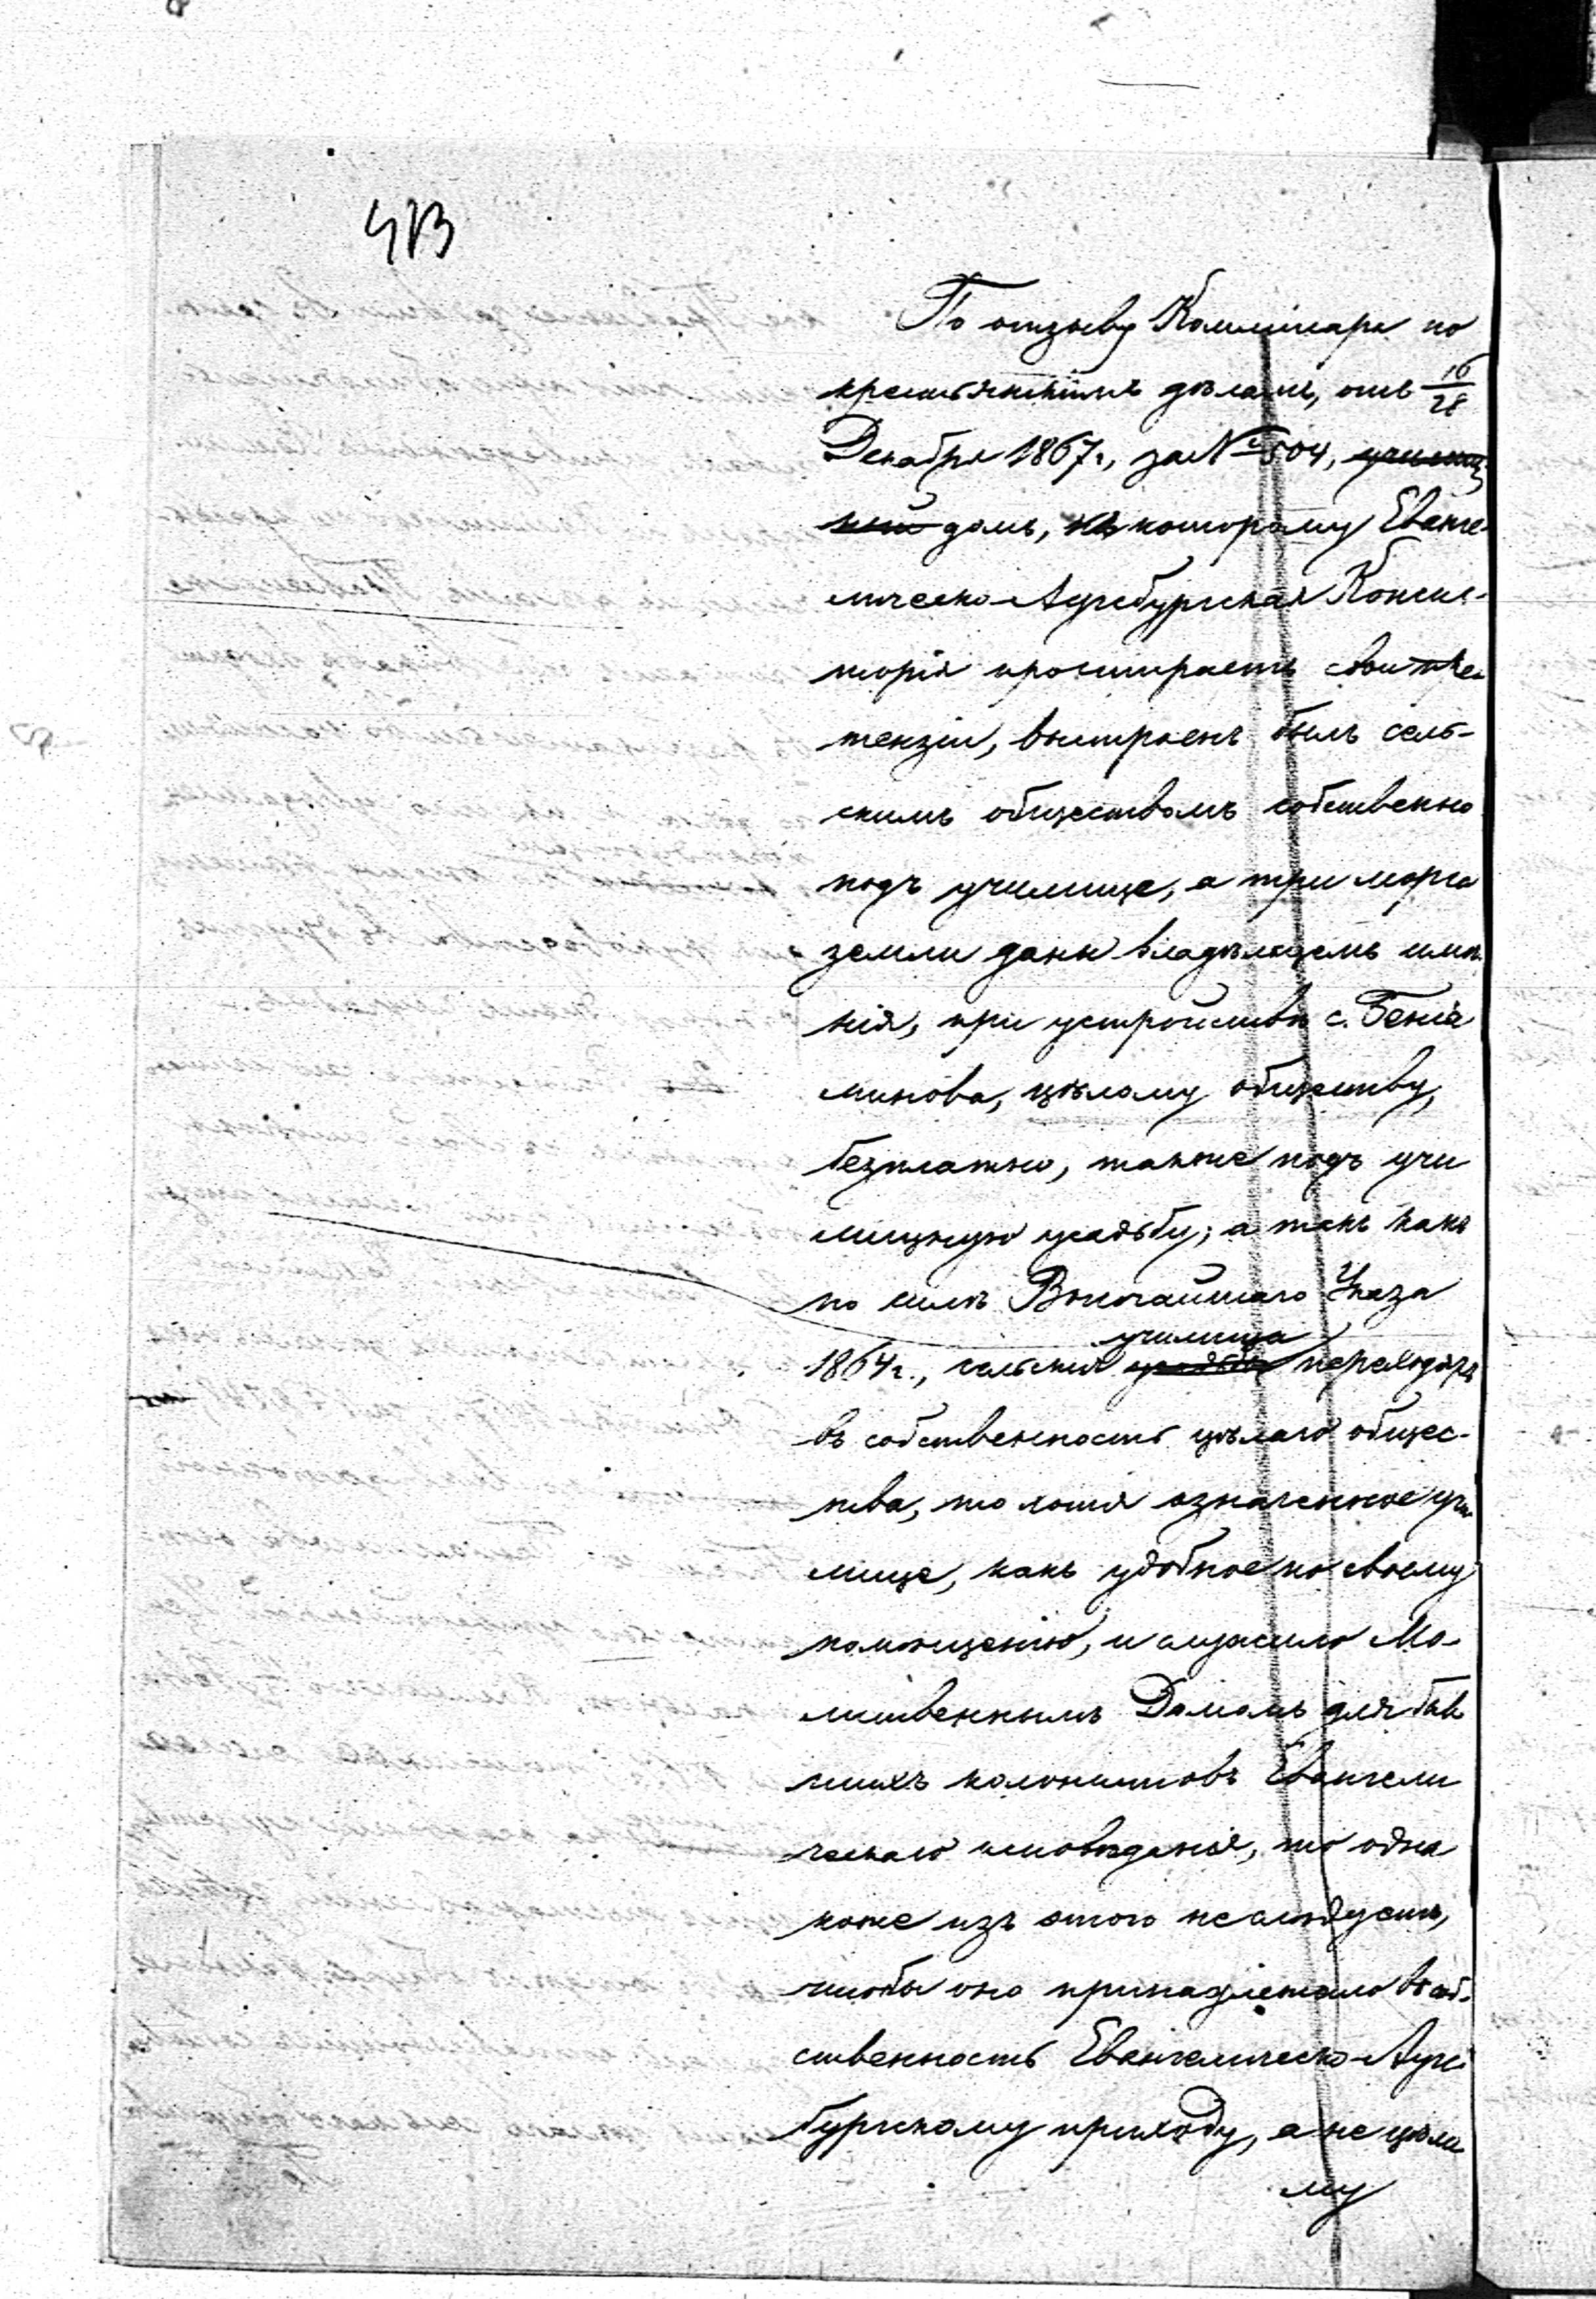 По отзыву Коммисара по
крестьянскимъ дѣламъ, отъ 16/28
Декабря 1867г., за № 504, училищ
ный домъ, къ которому Еванге
лическо-Аугсбургская Консис-
торія простираетъ свои пре
тензіи, выстроенъ былъ сель-
скимъ обществомъ собственно
подъ училище, а три морга
земли даны владѣльцемъ имѣ
нія, при устройствѣ с. Бенiа
минова, цѣлому обществу,
безплатно, также подъ учи
лищную усадьбу; а такъ какъ
по силѣ Высочайшаго Указа
училища
1864г., сельскія усадьбы переходятъ
въ собственность цѣлаго общес-
тва, то хотя означенное учи
лище, какъ удобное по своему
помѣщенію, и служило Мо-
литвеннымъ Домомъ для быв
шихъ колонистовъ Евангели
ческаго исповѣданія, то одна
коже изъ этого не слѣдуетъ,
чтобы оно принадлежало въ соб-
ственность Евангелическо-Аугс
бургскому приходу, а не цѣло
му